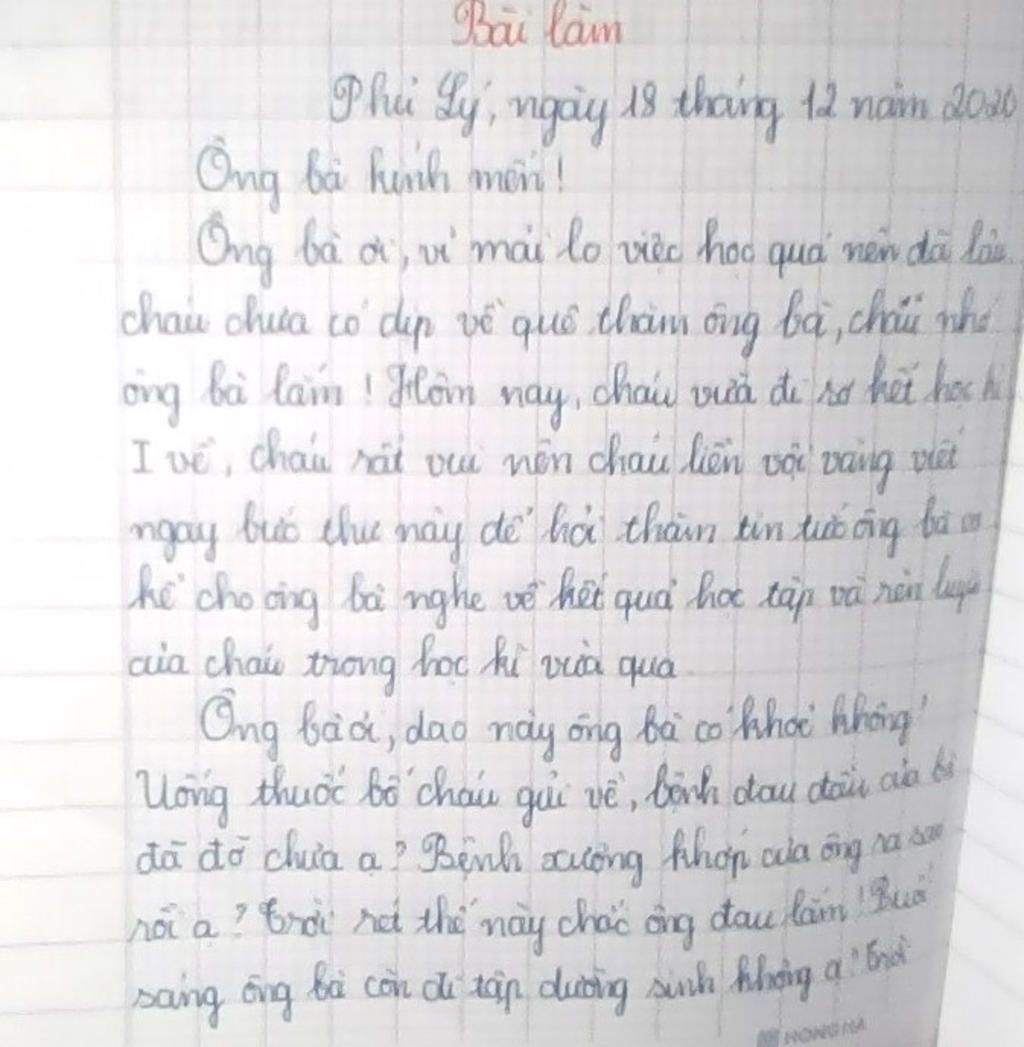 Bài làm
Phủ Lý, ngày 18 tháng 12 năm 2020
Ông bà kính mến!
Ông bà ơi, vì mải lo việc học quá nên đã lâu
cháu chưa có dịp về quê thăm ông bà, cháu nhớ
ông bà lắm! Hôm nay, cháu vừa đi sơ kết học kì
I về, cháu rất vui nên cháu liền vội vàng viết
ngay bức thư này để hỏi thăm tin tức ông bà
kể cho ông bà nghe về kết quả học tập và rèn luyện
của cháu trong học kì vừa qua
Ông bà ơi, dạo này ông bà có khoẻ không?
Uống thuốc bố cháu gửi về, bệnh đau đầu của bà
đã đỡ chưa ạ? Bệnh xương khớp của ông ra sao
rồi ạ? Trời rét thế này chắc ông đau lắm! Buổi
sáng ông bà còn đi tập dưỡng sinh không ạ? Trời
HONG HA